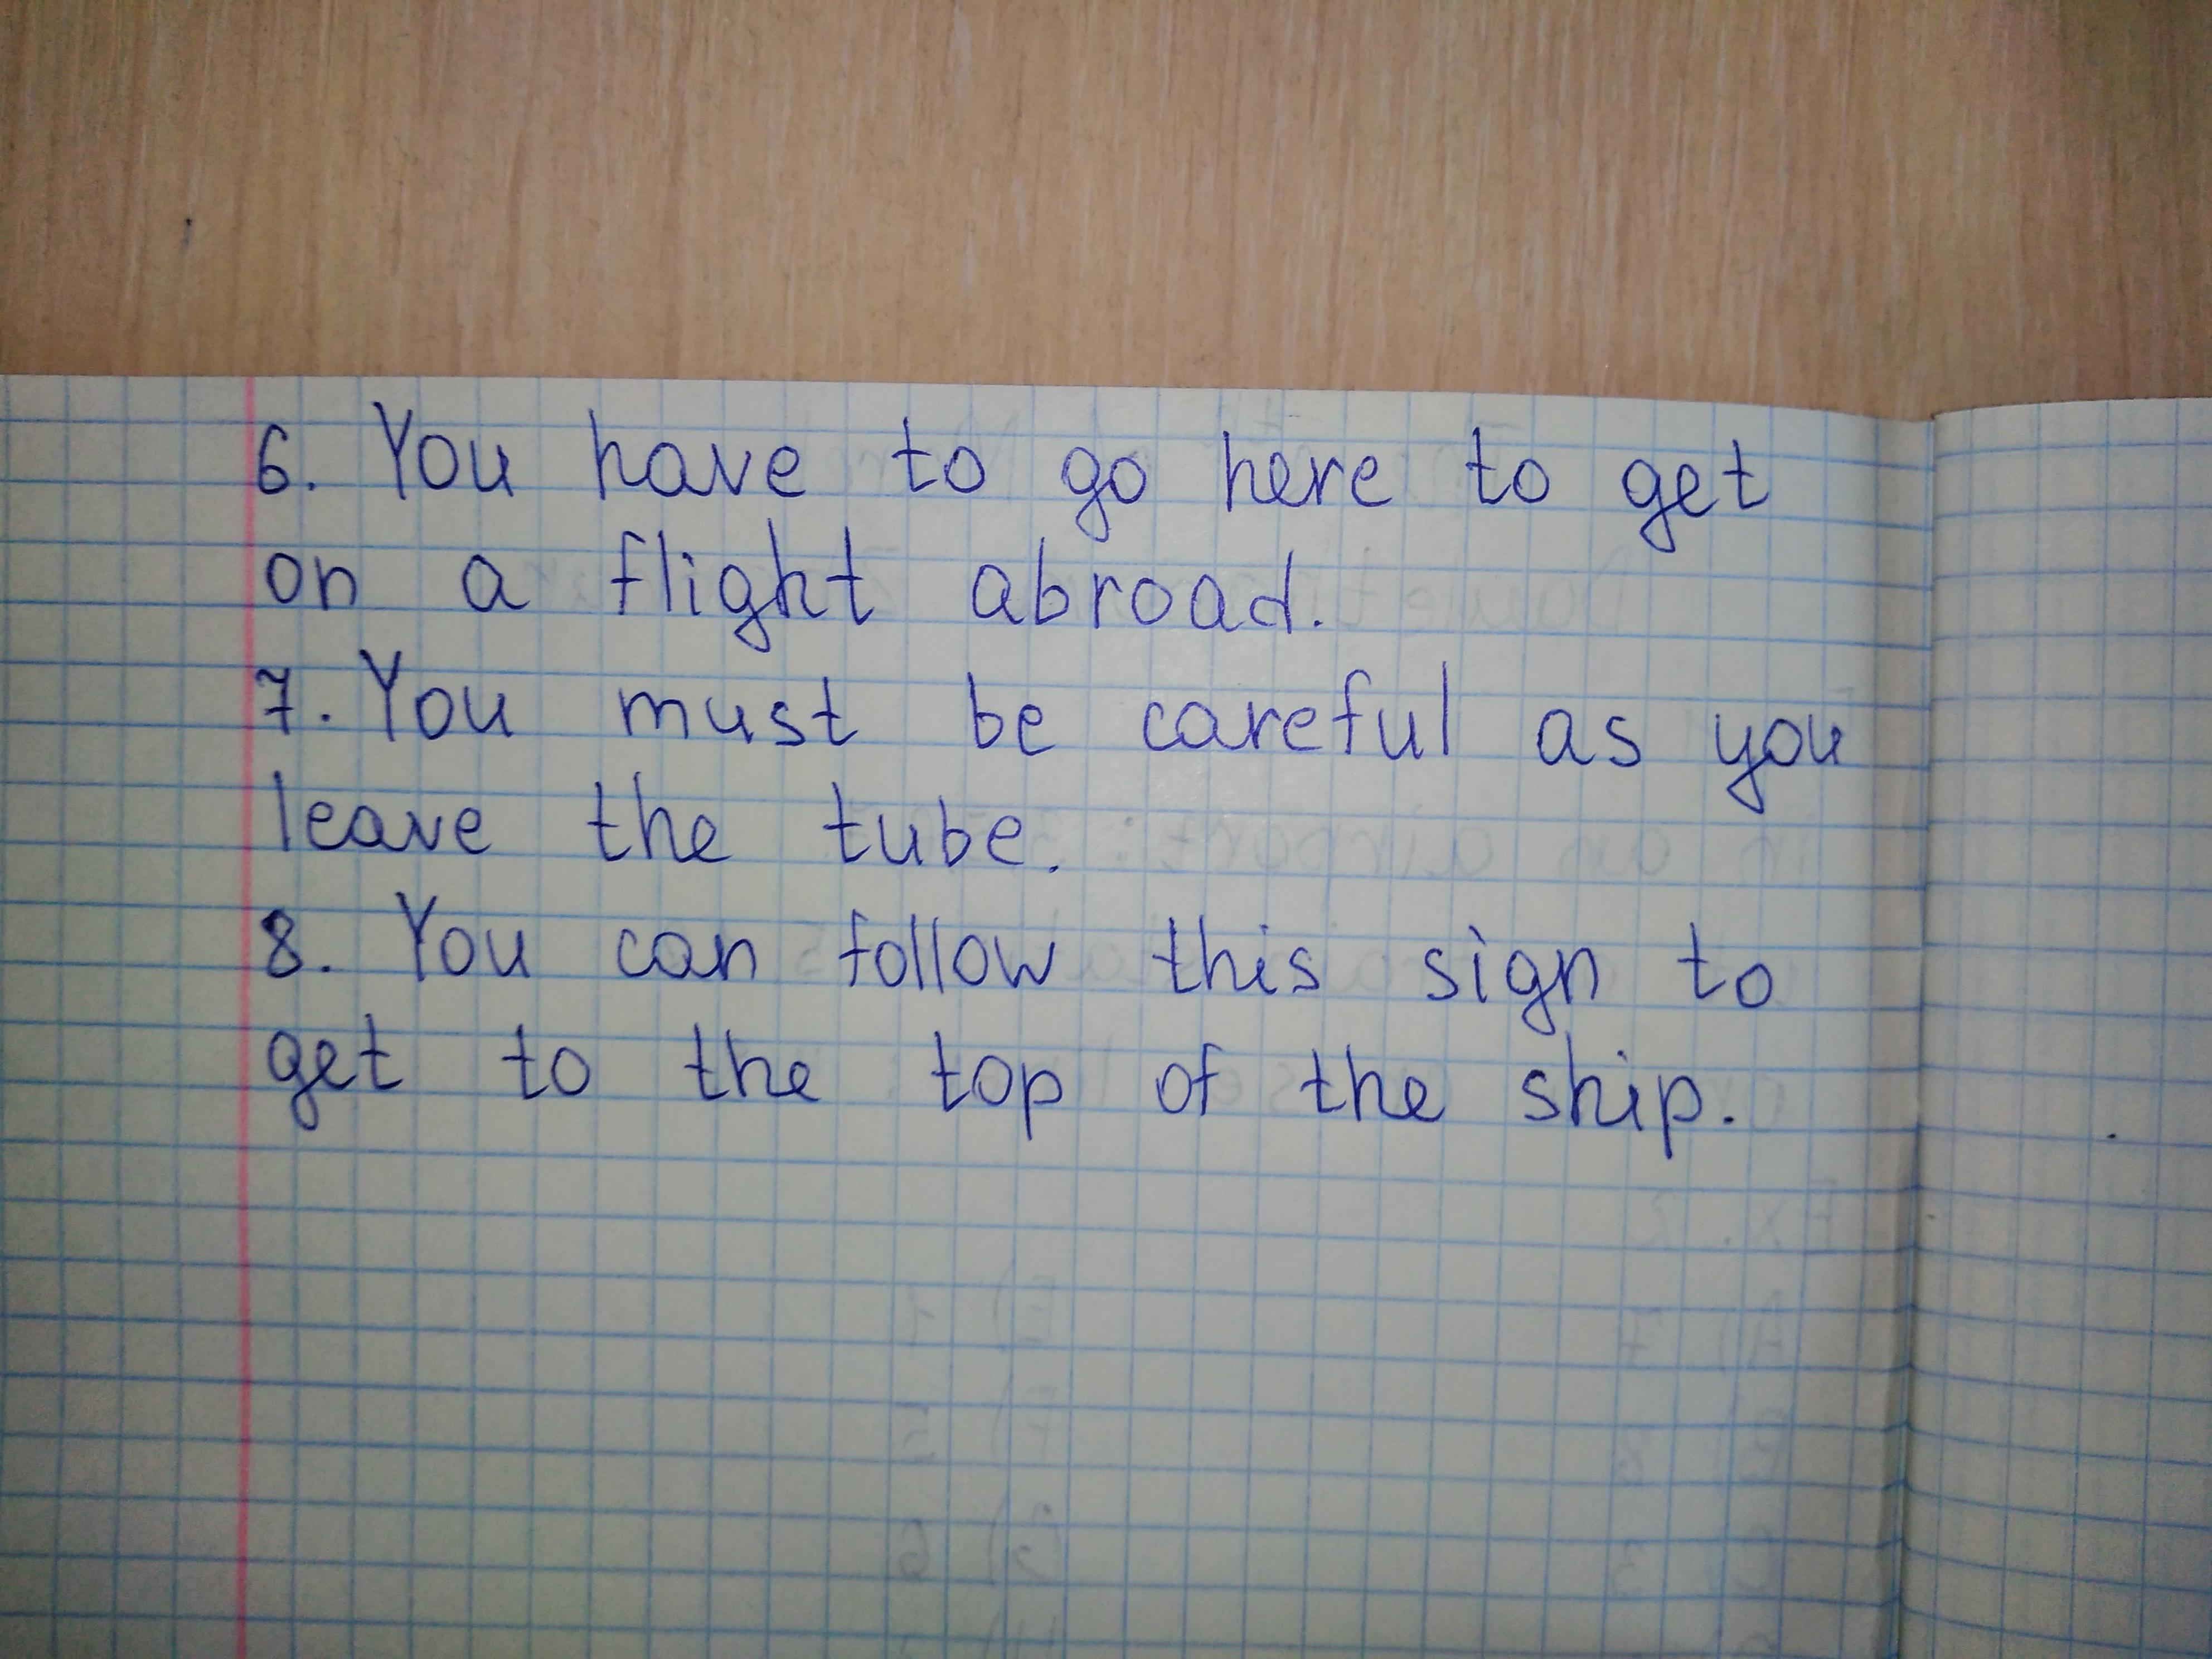 6. You have to go here to get
on a flight abroad.
7. You must be careful as you
leave the tube.
8. You can follow this sign to
get to the top of the ship.